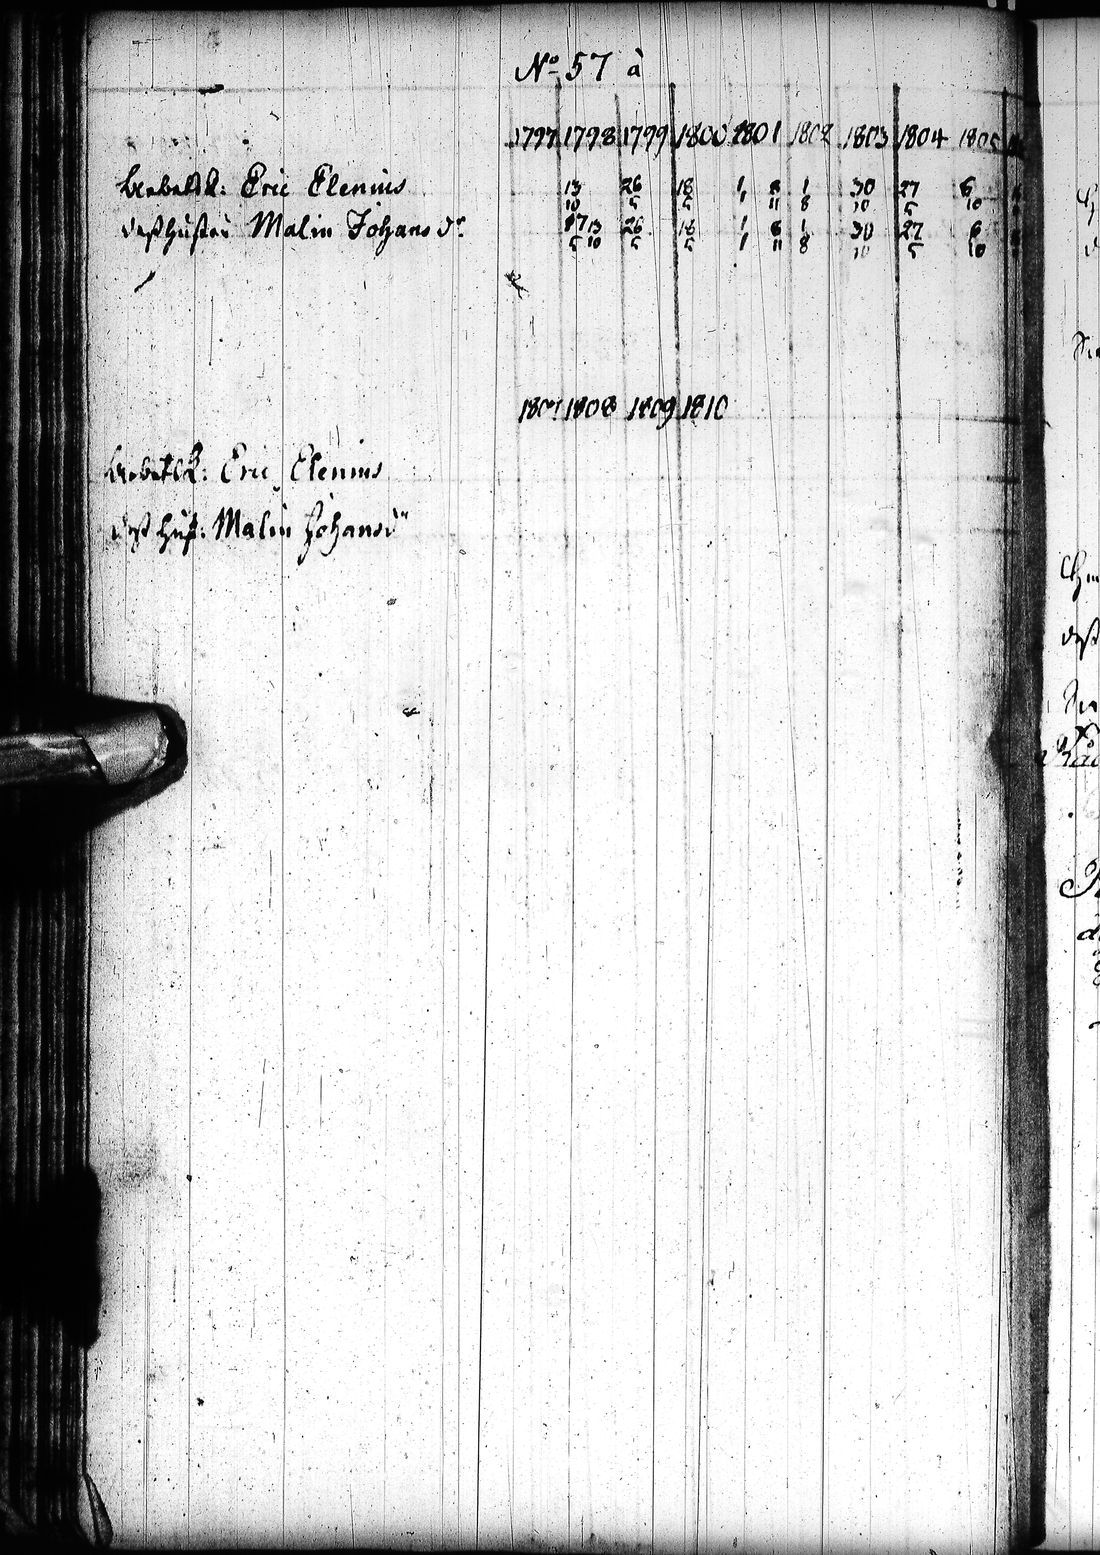 No 57 à
1797 1798 1799 1800 1801 1802 1803 1804 1805
Arbetsk: Eric Elenius 13 26 18 1 8 1 30 27 6
10 5 5 1 11 8 10 5 10
dess hustru Malin Johansdr 17 13 26 18 1 8 1 30 27 6
5 10 5 5 1 11 8 10 5 10
1807 1808 1809 1810
Arbetsk: Eric Elenius
dess hust: Malin Johansdr